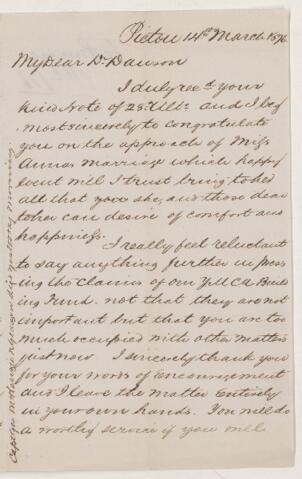 Pictou 14th March 1876
My Dear Dr Dawson
I duly recd your
kind Note of 28th Ulto and I beg
most sincerely to congratulate
you on the approach of Miss
Annas marriage which happy
Event will I trust bring to her
all that you she, and those dear
to her can desire of comfort and
happiness.
I really feel reluctant
to say anything further in press
ing the Claims of our YMCA Build
ing Fund. not that they are not
important but that you are too
much occupied with other matters
just now I sincerely thank you
for your words of Encouragement
and I leave the matter Entirely
in your own hands. You will do
a worthy service if you will
yesterday morning.